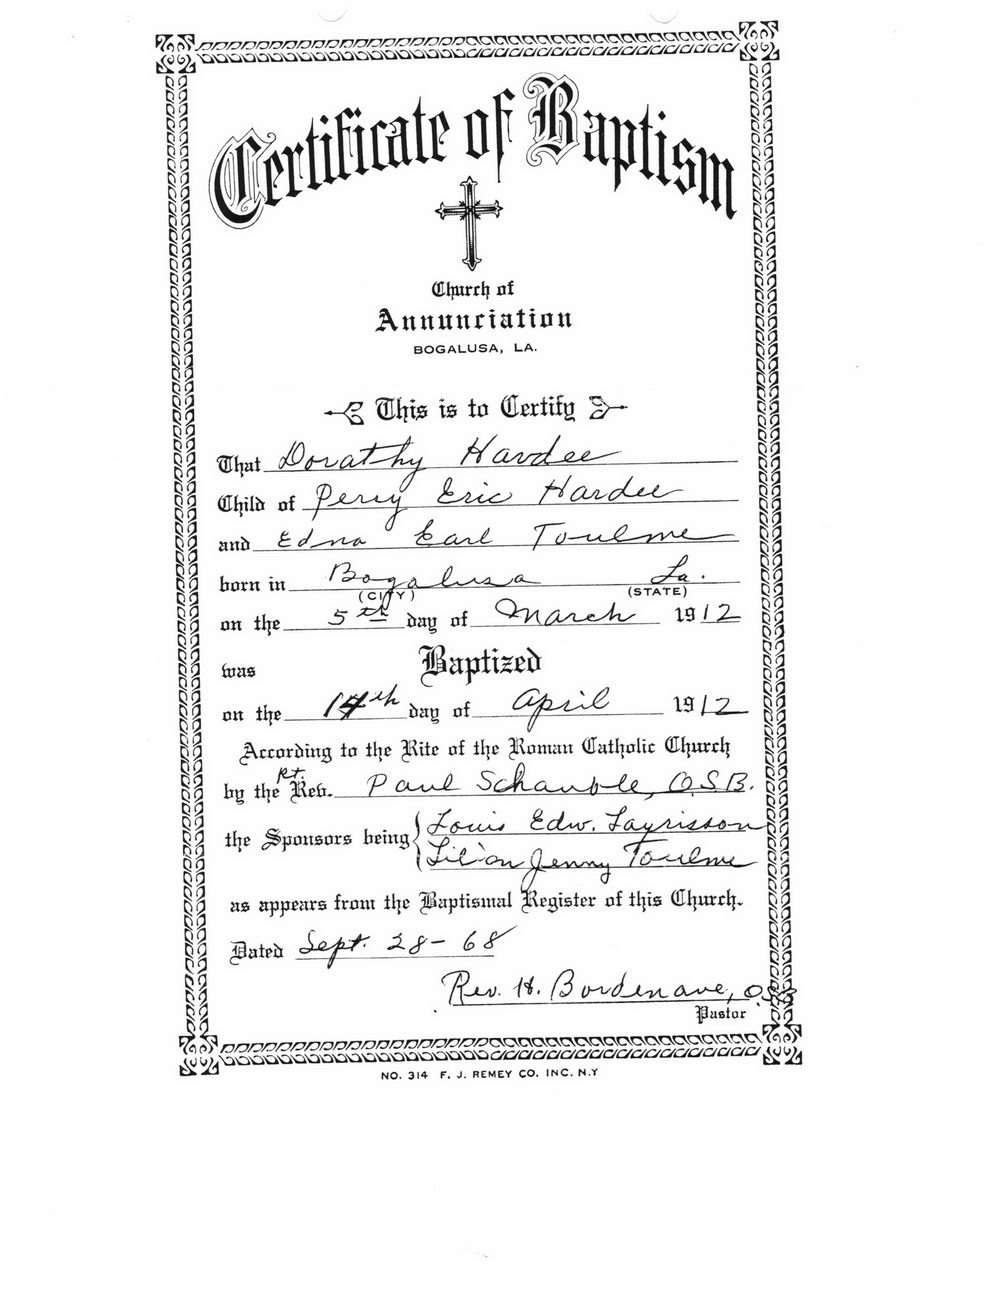 Certificate of Baptism
Church of
Annunciation
BOGALUSA, LA.
This is to Certify
That Dorathy Hardee
Child of Percy Eric Hardee
and Edna Earl Toulme
born in Bogalusa La.
(CITY) (STATE)
on the 5th day of March 1912
was Baptized
on the 14th day of April 1912
According to the Rite of the Roman Catholic Church
by the Rt. Rev. Paul Schauble, O.S.B.
the Sponsors being Louis Edw. Layrisson
Lilian Jenny Toulme
as appears from the Baptismal Register of this Church.
Dated Sept. 28-68
Rev. H. Bordenave, O.S.B
Pastor
NO. 314 F. J. REMEY CO. INC. N.Y